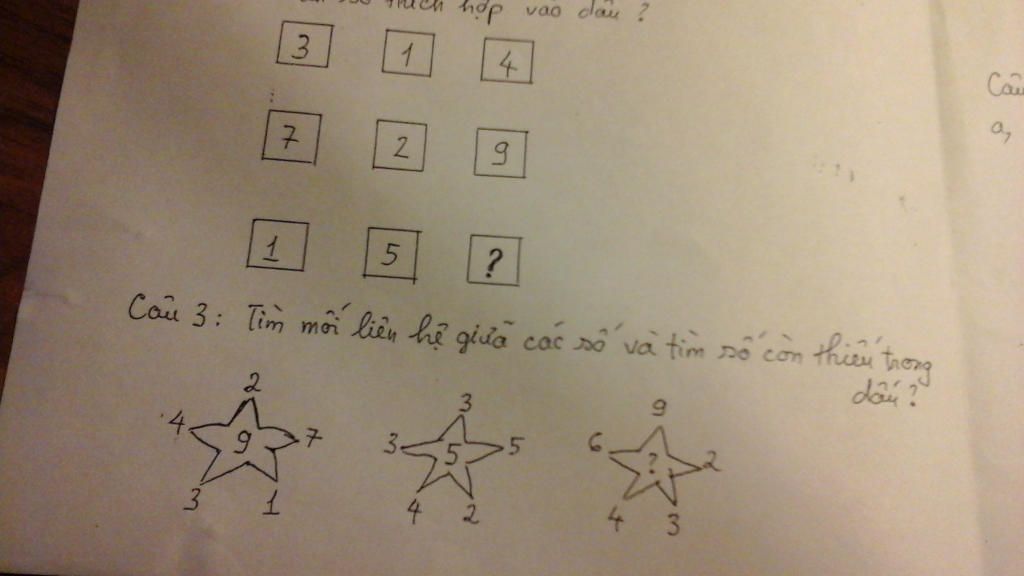 số thích hợp vào dấu ?
3 1 4
7 2 9
1 5 ?
Câu 3: Tìm mối liên hệ giữa các số và tìm số còn thiếu trong
dấu ?
2 3 9
4 9 7 3 5 5 6 ? 2
3 1 4 2 4 3
Câu
a,